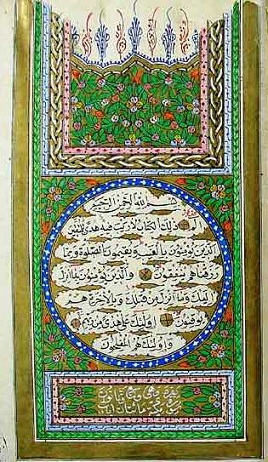 بسم الله الرحمن الرحيم
الم ذلك الكتاب لا ريب فيه هدى للمتقين
الذين يؤمنون بالغيب ويقيمون الصلوة ومما
رزقناهم ينفقون والذين يؤمنون بما انزل
اليك وما انزل من قبلك وبالاخرة هم
يوقنون اولئك على هدى من ربهم
واولئك هم المفلحون